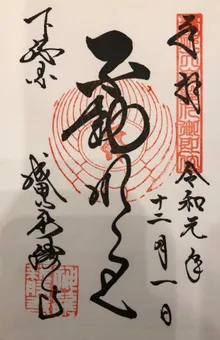 奉拝
令和元年
十二月一日
不動明王
下総国
成田山新勝寺